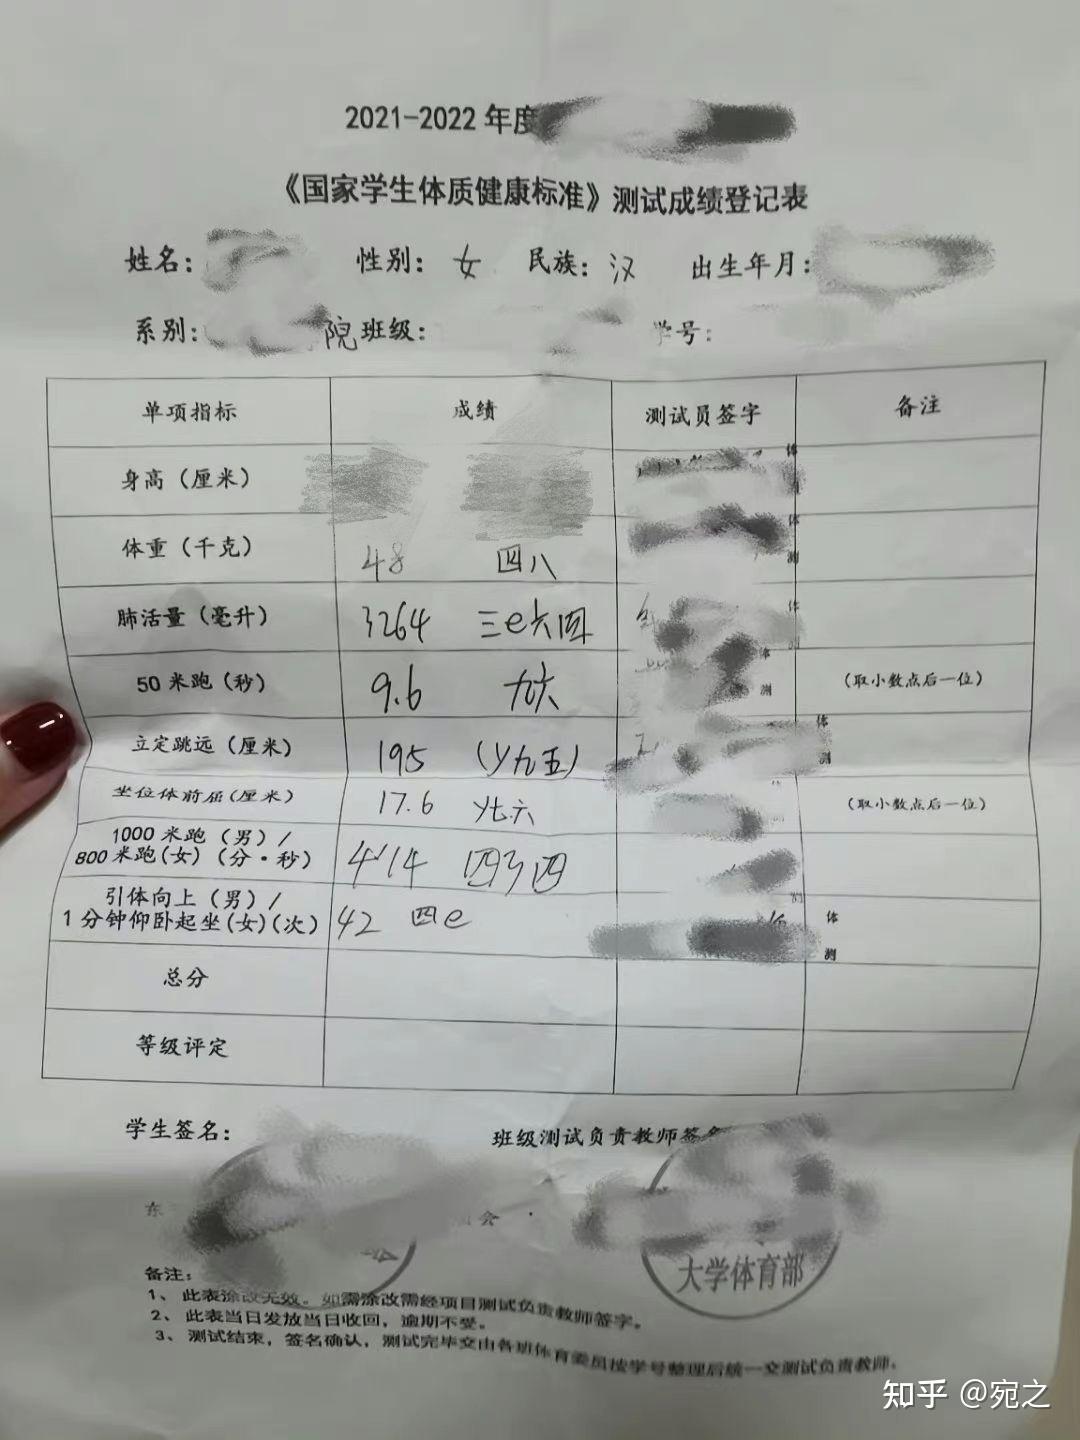 2021-2022年度
《国家学生体质健康标准》测试成绩登记表
姓名： 性别：女 民族：汉 出生年月：
系别： 院 班级： 学号：
单项指标 成绩 测试员签字 备注
身高（厘米） 体
体重（千克） 48 四八 体测
肺活量（毫升） 3264 三e六四 体测
50米跑（秒） 9.6 九六 体测 （取小数点后一位）
立定跳远（厘米） 195 （y九五） 体测
坐位体前屈（厘米） 17.6 y七六 （取小数点后一位）
1000米跑（男）/
800米跑(女)（分·秒） 4'14 四 四
引体向上（男）/
1分钟仰卧起坐(女)(次) 42 四e 体测
总分
等级评定
学生签名： 班级测试负责教师签名
东 会
大学体育部
备注：
1、此表涂改无效。如需涂改需经项目测试负责教师签字。
2、此表当日发放当日收回，逾期不受。
3、测试结束，签名确认，测试完毕交由各班体育委员按学号整理后统一交测试负责教师.
知乎 @宛之